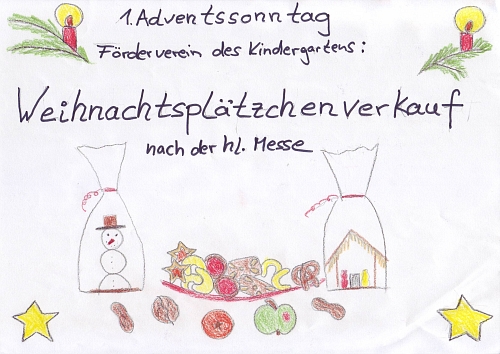 1. Adventssonntag
Förderverein des Kindergartens:
Weihnachtsplätzchenverkauf
nach der hl. Messe